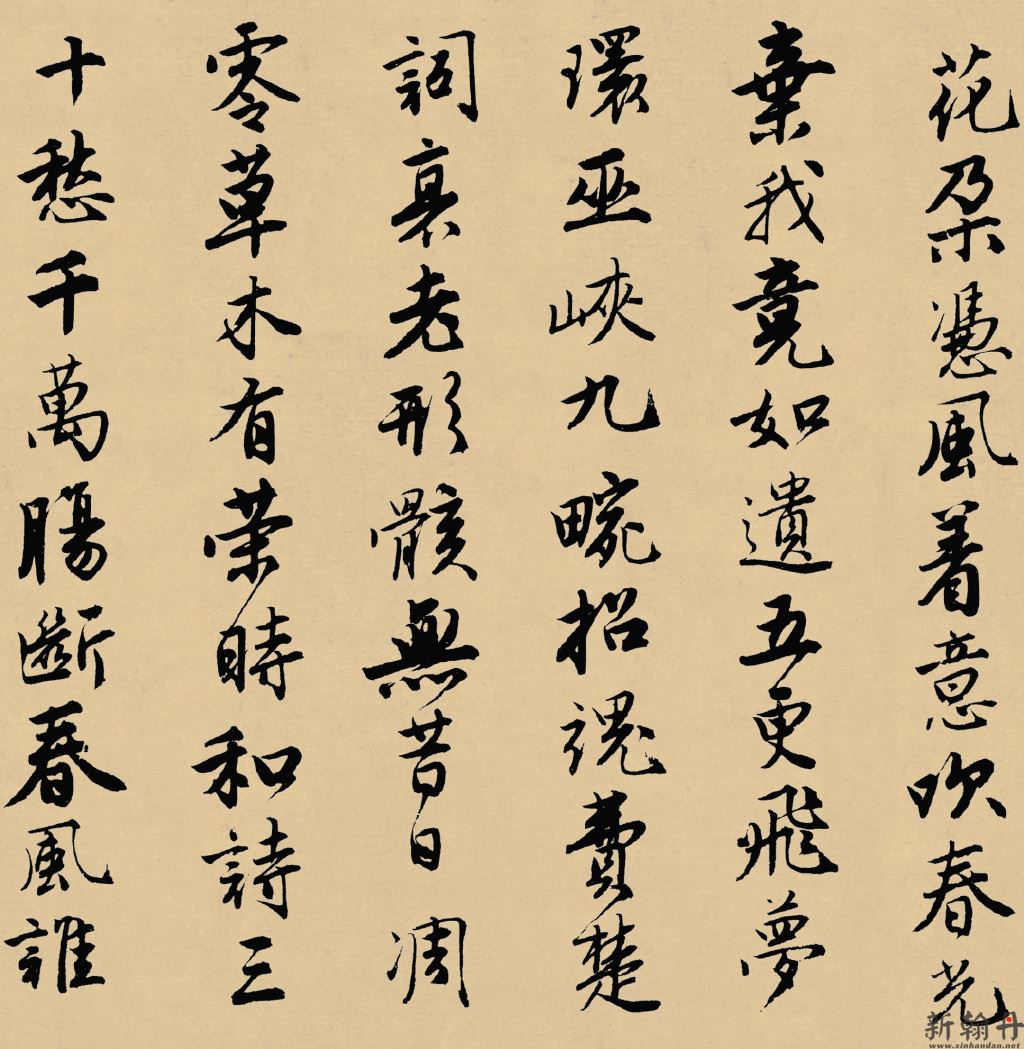 花朵憑風着意吹春光
棄我竟如遺五更飛夢
環巫峽九畹招魂費楚
詞衰老形骸無昔日凋
零草木有榮時和詩三
十愁千萬腸斷春風誰
新翰丹
www.xinhandan.net